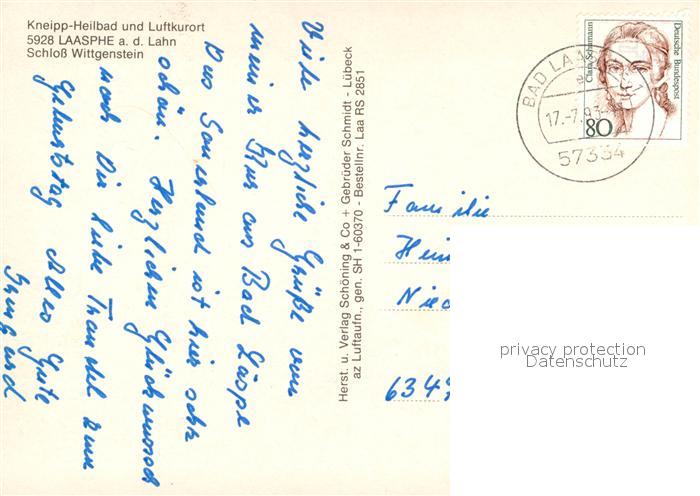 Kneipp-Heilbad und Luftkurort
5928 LAASPHE a. d. Lahn
Schloß Wittgenstein
Viele herzliche Grüße von
meiner Kur aus Bad Laspe
Das Sauerland ist hier sehr
schön. Herzlichen Glückwunsch
noch Die liebe zum
Geburtstag Alles Gute
Irmgard
Herst. u. Verlag Schöning & Co + Gebrüder Schmidt - Lübeck
az Luftaufn., gen. SH 1-60370 - Bestellnr. Laa RS 2851
Clara Schumann
Deutsche Bundespost
80
BAD LAA
17.-7.93
57334
Familie
Hein
Nied
634
privacy protection
Datenschutz